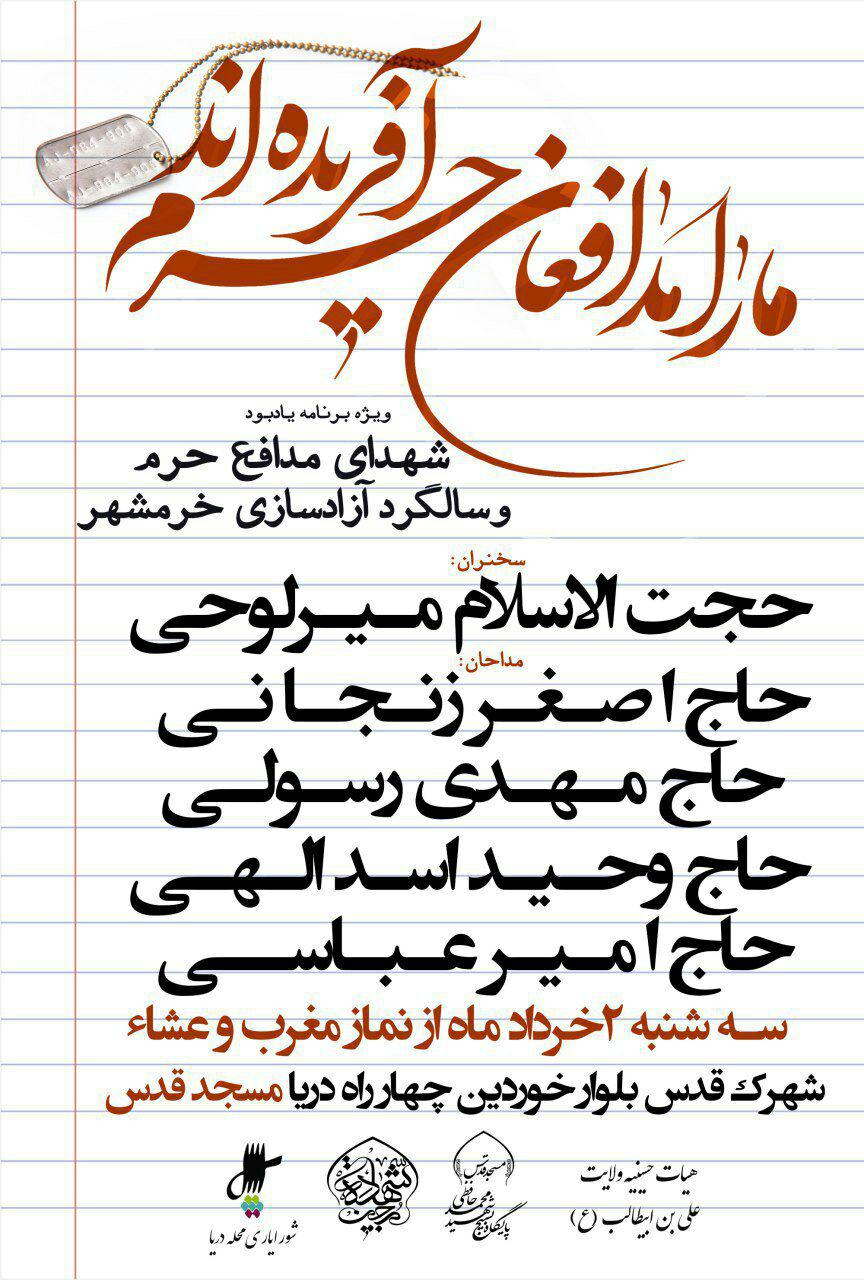 ما را مدافعان حرم آفریده اند
AJ-984-906
AJ-984-906
ویژه برنامه یادبود
شهدای مدافع حرم
و سالگرد آزادسازی خرمشهر
سخنران:
حجت الاسلام میرلوحی
مداحان:
حاج اصغر زنجانی
حاج مهدی رسولی
حاج وحید اسدالهی
حاج امیر عباسی
سه شنبه ۲ خرداد ماه از نماز مغرب و عشاء
شهرک قدس بلوار خوردین چهار راه دریا مسجد قدس
هیات حسینیه ولایت
علی بن ابیطالب (ع)
مسجد قدس
پایگاه بسیج شهید محمد حافظی
شورایاری محله دریا